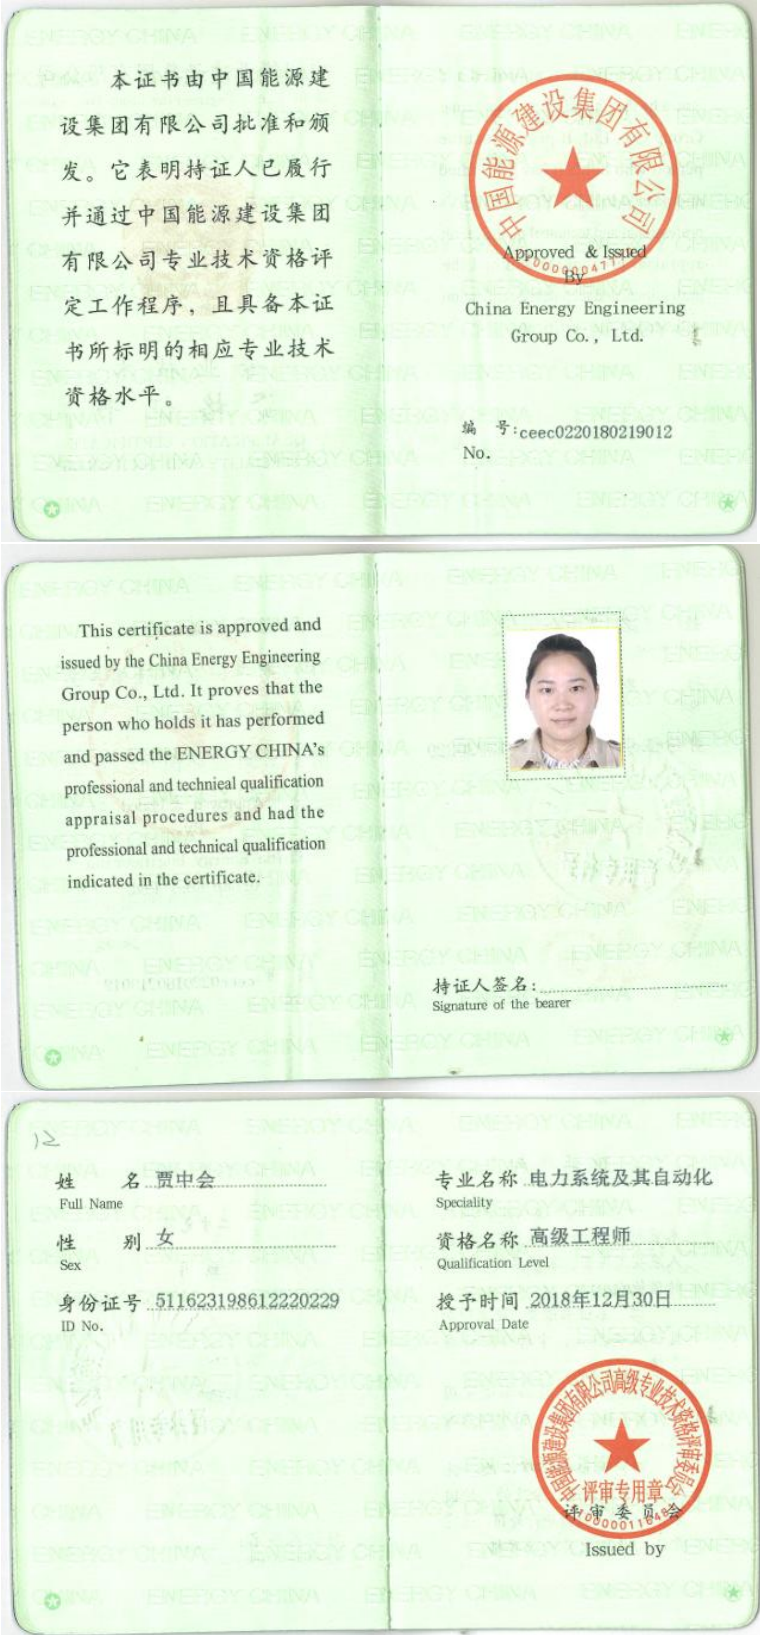 本证书由中国能源建
设集团有限公司批准和颁
发。它表明持证人已履行
并通过中国能源建设集团
有限公司专业技术资格评
定工作程序，且具备本证
书所标明的相应专业技术
资格水平。
中国能源建设集团有限公司
Approved & Issued
By
China Energy Engineering
Group Co., Ltd.
编 号:ceec0220180219012
No.
This certificate is approved and
issued by the China Energy Engineering
Group Co., Ltd. It proves that the
person who holds it has performed
and passed the ENERGY CHINA's
professional and technieal qualification
appraisal procedures and had the
professional and technical qualification
indicated in the certificate.
持证人签名:
Signature of the bearer
12
姓 名 贾中会
Full Name
性 别 女
Sex
身份证号 511623198612220229
ID No.
专业名称 电力系统及其自动化
Speciality
资格名称 高级工程师
Qualification Level
授予时间 2018年12月30日
Approval Date
中国能源建设集团有限公司高级专业技术资格评审委员会
评审专用章
评审委员会
Issued by
ENERGY CHINA